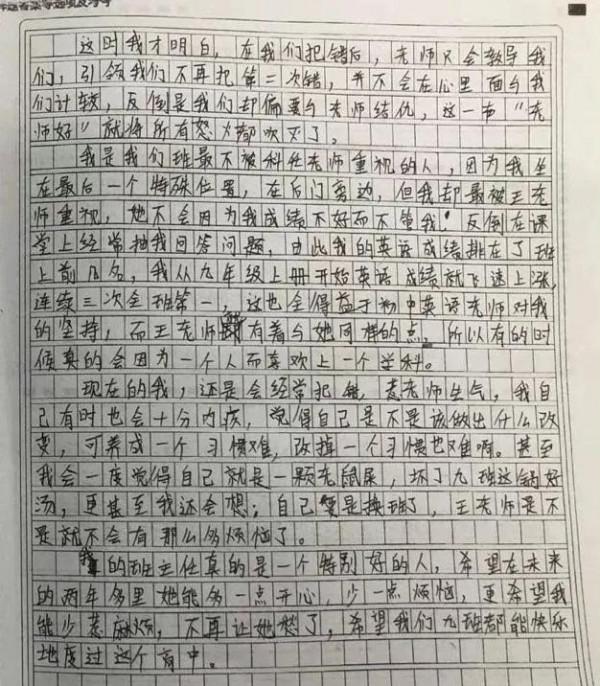 这时我才明白，在我们犯错后，老师只会教导我
们，引领我们不再犯第二次错，并不会在心里面与我
们计较，反倒是我们却偏要与老师结仇，这一布“老
师好”就将所有怒火都吹灭了。
我是我们班最不被科任老师重视的人，因为我坐
在最后一个特殊位置，在后门旁边，但我却最被王老
师重视，她不会因为我成绩不好而不管我！反倒在课
堂上经常抽我回答问题，由此我的英语成绩排在了班
上前几名，我从九年级上册开始英语成绩就飞速上涨，
连续三次全班第一，这也全得益于初中英语老师对我
的坚持，而王老师有着与她同样的点，所以有的时
候真的会因为一个人而喜欢上一个学科。
现在的我，还是会经常犯错，惹老师生气，我自
己有时也会十分内疚，觉得自己是不是该做出什么改
变，可养成一个习惯难，改掉一个习惯也难啊。甚至
我会一度觉得自己就是一颗老鼠屎，坏了九班这锅好
汤，更甚至我还会想；自己要是换班了，王老师是不
是就不会有那么多烦恼了。
我的班主任真的是一个特别好的人，希望在未来
的两年多里她能多一点开心，少一点烦恼，更希望我
能少惹麻烦，不再让她愁了，希望我们九班都能快乐
地度过这个高中。